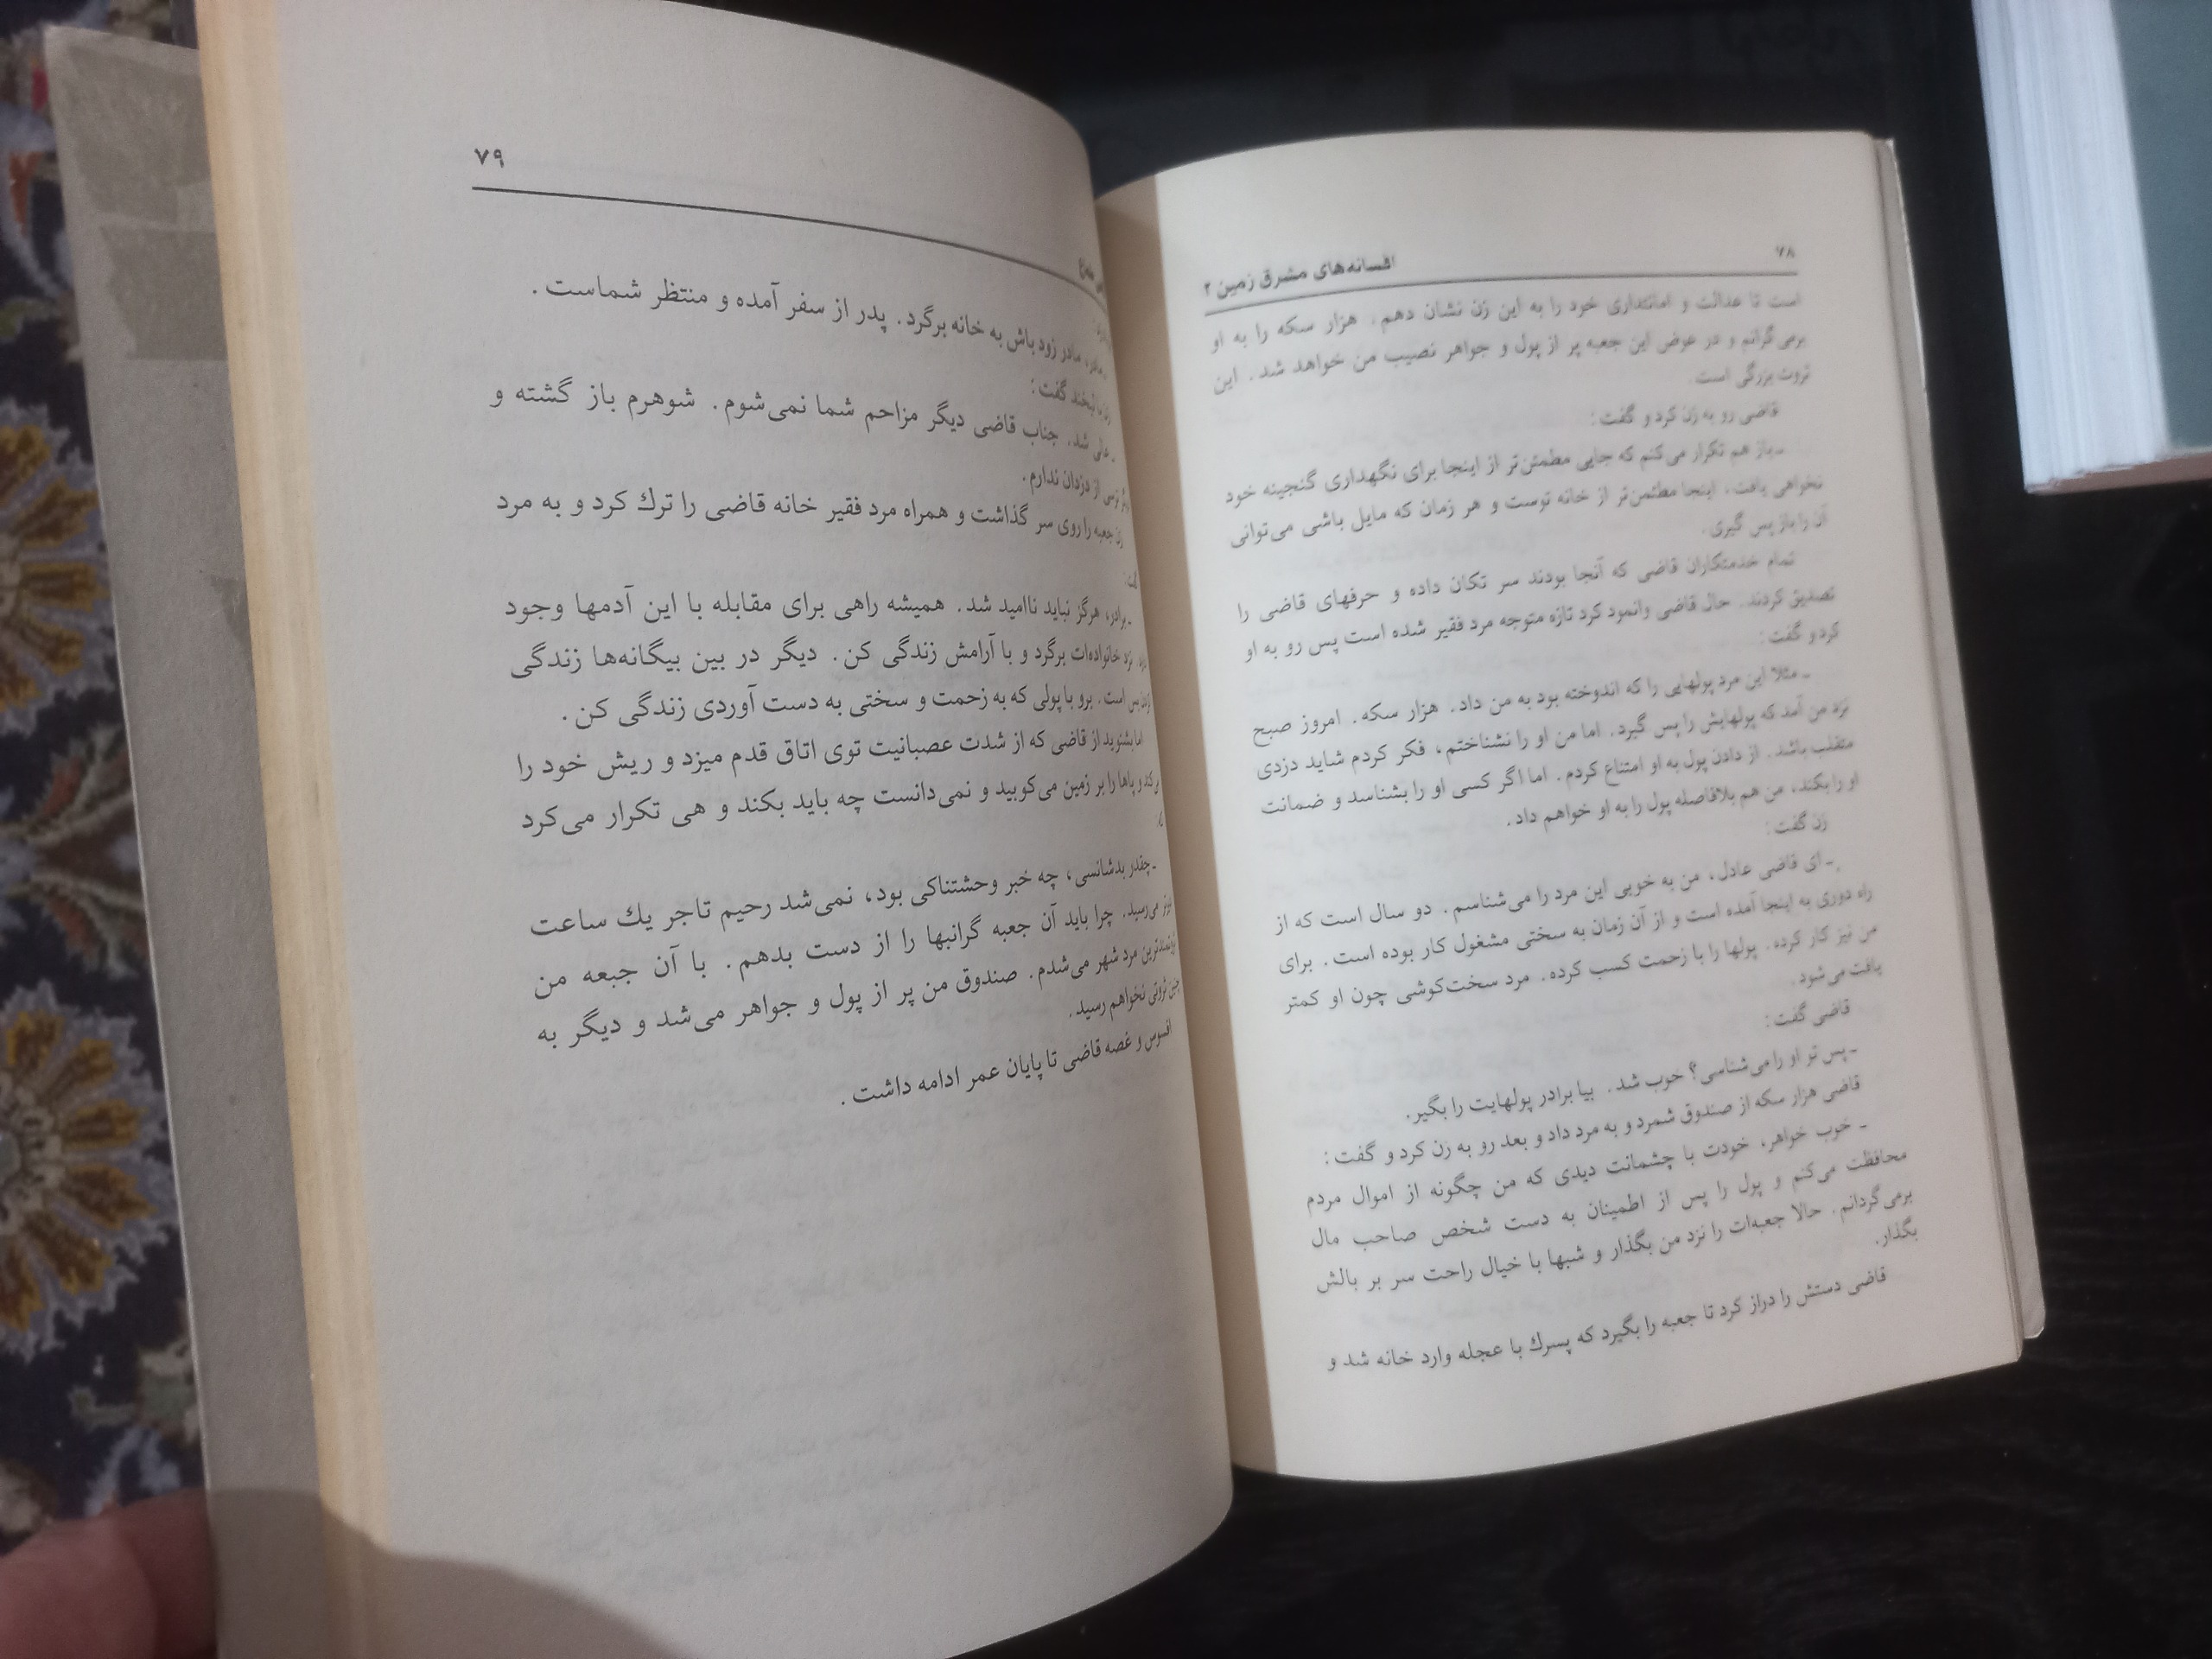 ۷۸
افسانه‌های مشرق زمین ۲
است تا عدالت و امانتداری خود را به این زن نشان دهم. هزار سکه را به او
برمی‌گرانم و در عوض این جعبه پر از پول و جواهر نصیب من خواهد شد. این
ثروت بزرگی است.
قاضی رو به زن کرد و گفت:
ـ باز هم تکرار می‌کنم که جایی مطمئن‌تر از اینجا برای نگهداری گنجینه خود
نخواهی یافت، اینجا مطئمن‌تر از خانه توست و هر زمان که مایل باشی می‌توانی
آن را باز پس گیری.
تمام خدمتکاران قاضی که آنجا بودند سر تکان داده و حرفهای قاضی را
تصدیق کردند. حال قاضی وانمرد کرد تازه متوجه مرد فقیر شده است پس رو به او
کرد و گفت:
ـ مثلا این مرد پولهایی را که اندوخته بود به من داد. هزار سکه. امروز صبح
نزد من آمد که پولهایش را پس گیرد. اما من او را نشناختم، فکر کردم شاید دزدی
متقلب باشد. از دادن پول به او امتناع کردم. اما اگر کسی او را بشناسد و ضمانت
او را بکند، من هم بلافاصله پول را به او خواهم داد.
زن گفت:
ـ ای قاضی عادل، من به خوبی این مرد را می‌شناسم. دو سال است که از
راه دوری به اینجا آمده است و از آن زمان به سختی مشغول کار بوده است. برای
من نیز کار کرده. پولها را با زحمت کسب کرده. مرد سخت‌کوشی چون او کمتر
یافت می‌شود.
قاضی گفت:
ـ پس تر او را می‌شناسی؟ خوب شد. بیا برادر پولهایت را بگیر.
قاضی هزار سکه از صندوق شمرد و به مرد داد و بعد رو به زن کرد و گفت:
ـ خوب خواهر، خودت با چشمانت دیدی که من چگونه از اموال مردم
محافظت می‌کنم و پول را پس از اطمینان به دست شخص صاحب مال
برمی‌گردانم. حالا جعبه‌ات را نزد من بگذار و شبها با خیال راحت سر بر بالش
بگذار.
قاضی دستش را دراز کرد تا جعبه را بگیرد که پسرك با عجله وارد خانه شد و
۷۹
ـ مادر، مادر زود باش به خانه برگرد. پدر از سفر آمده و منتظر شماست.
لبخند گفت:
ـ عالی شد. جناب قاضی دیگر مزاحم شما نمی‌شوم. شوهرم باز گشته و
ترسی از دزدان ندارم.
زن جعبه را روی سر گذاشت و همراه مرد فقیر خانه قاضی را ترك کرد و به مرد
ـ برادر، هرگز نباید ناامید شد. همیشه راهی برای مقابله با این آدمها وجود
نزد خانواده‌ات برگرد و با آرامش زندگی کن. دیگر در بین بیگانه‌ها زندگی
بس است. برو با پولی که به زحمت و سختی به دست آوردی زندگی کن.
اما بشنوید از قاضی که از شدت عصبانیت توی اتاق قدم میزد و ریش خود را
و پاها را بر زمین می‌کوبید و نمی‌دانست چه باید بکند و هی تکرار می‌کرد
ـ چقدر بدشانسی، چه خبر وحشتناکی بود، نمی‌شد رحیم تاجر یك ساعت
می‌رسید. چرا باید آن جعبه گرانبها را از دست بدهم. با آن جبعه من
مرد شهر می‌شدم. صندوق من پر از پول و جواهر می‌شد و دیگر به
چنین ثروتی نخواهم رسید.
افسوس و غصه قاضی تا پایان عمر ادامه داشت.